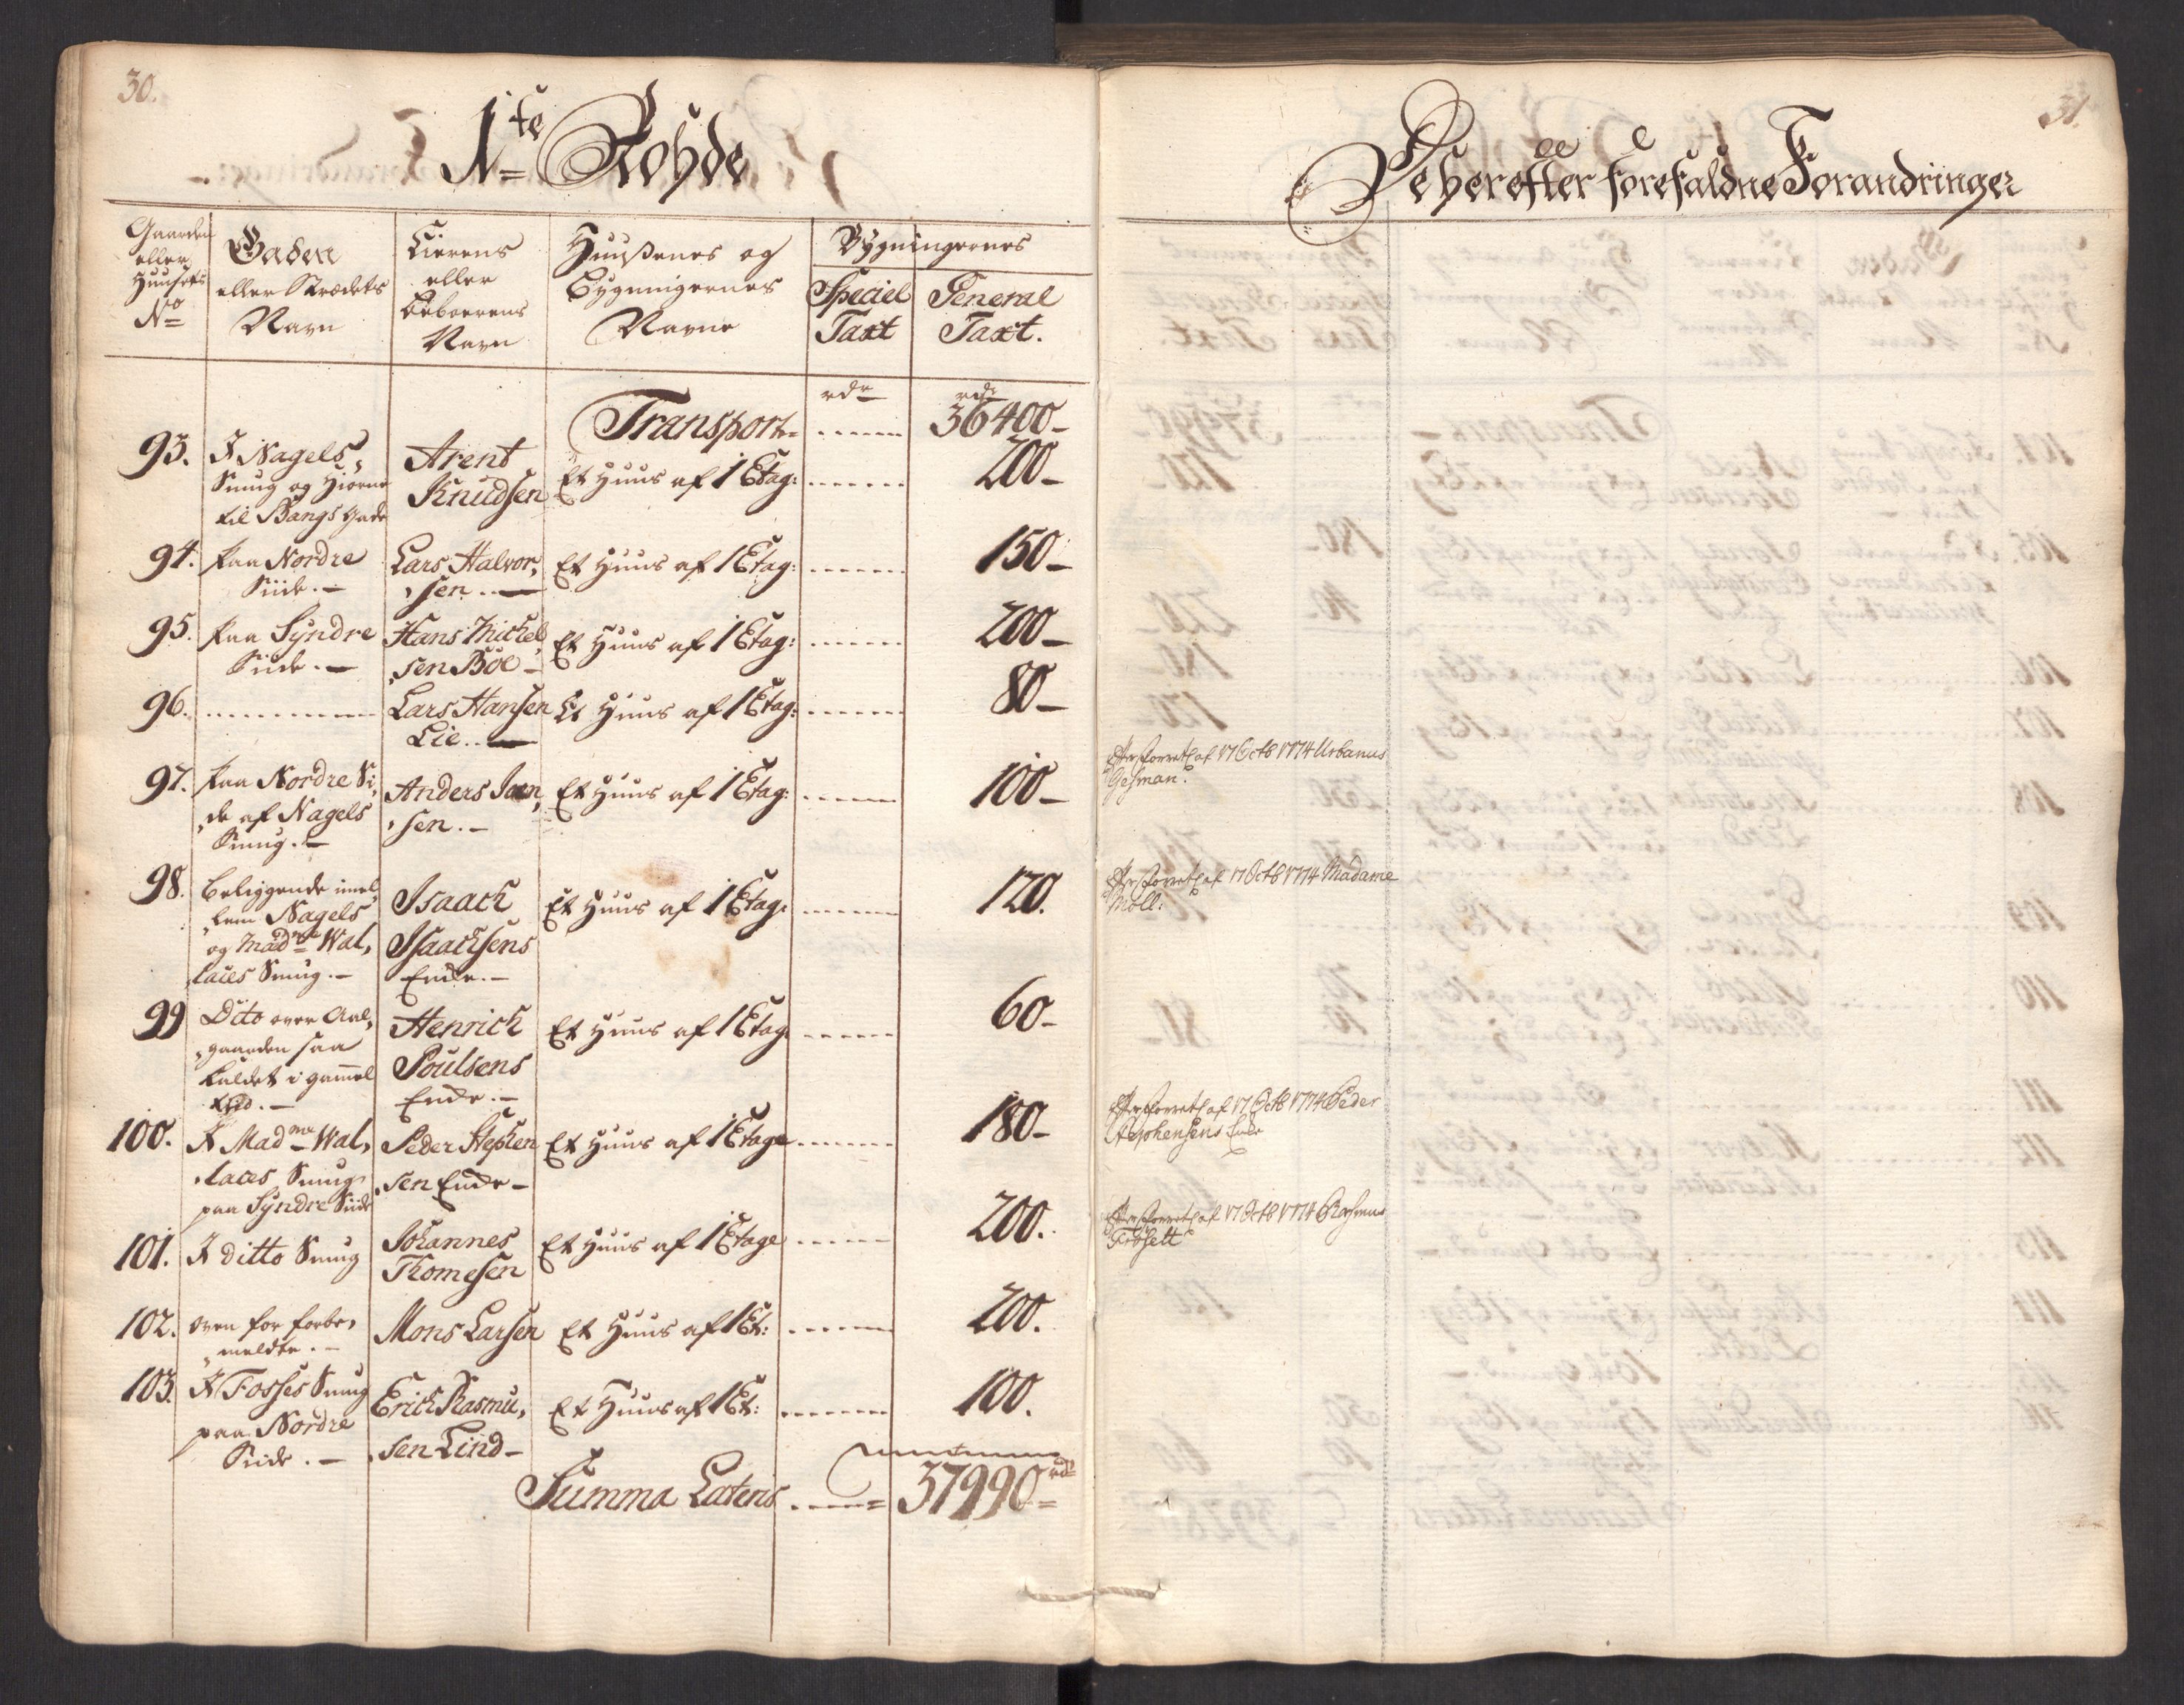 30.
1te Rohde
Gaarden
eller
Huusets
No
Gaden
eller Strædets
Navn
Eierens
eller
Beboerens
Navn
Huußenes og
Bygningernes
Navne
Bygningernes
Speciel
Taxt
General
Taxt.
rdr
rdr
Transport= ...... 36400-
93. I Nagels,
Smug og Hiørne
til Bangs Gade
Arent
Knudsen
Et Huus af 1 Etag: ...... 200-
94. Paa Nordre
Siide.-
Lars Halvor,
,sen..-
Et Huus af 1 Etag: ...... 150-
95. Paa Syndre
Siide.-
Hans Michel,
,sen Böe-
Et Huus af 1 Etag: ...... 200-
96. ..........
Lars Hansen
Lie..-
Et Huus af 1 Etag: ...... 80-
97. Paa Nordre Si,
,de af Nagels
Smug.-
Anders Joen,
,sen.-
Et Huus af 1 Etag: ...... 100-
98. Beliggende imel,
,lem Nagels
og Madme Wal,
,laces Smug.-
Isaach
Isaachsens
Enke.-
Et Huus af 1 Etag: ...... 120.
99 Dito over Aal,
,gaarden saa
kaldet i gamel
tid.-
Henrich
Poulsens
Enke.-
Et Huus af 1 Etag. ...... 60-
100. I Madme Wal,
,laces Smug
paa Syndre Siide
Peder Stephen
,sen Enke-
Et Huus af 1 Etage ...... 180-
101. I ditto Smug
Johannes
Thomesen
Et Huus af 1 Etage ...... 200.
102. Oven for forbe,
,meldte.-
Mons Larsen
Et Huus af 1 Et: ...... 200.
103. I Fosses Smug
paa Nordre
Siide.-
Erich Rasmu,
,sen Lind-
Et Huus af 1 Et: ...... 100.
Summa Lateris ....= 37990 rdr=
31.
De herefter forefaldne Forandringer
Efter Forretn af 17 Octb 1774 Urbanus
Gesman.
Efter Forretn af 17 Octb 1774 Madame
Möll:
Efter Forretn af 17 Octb 1774 Peder
Stephensens Enke
Efter Forretn af 17 Octb 1774 Rasmus